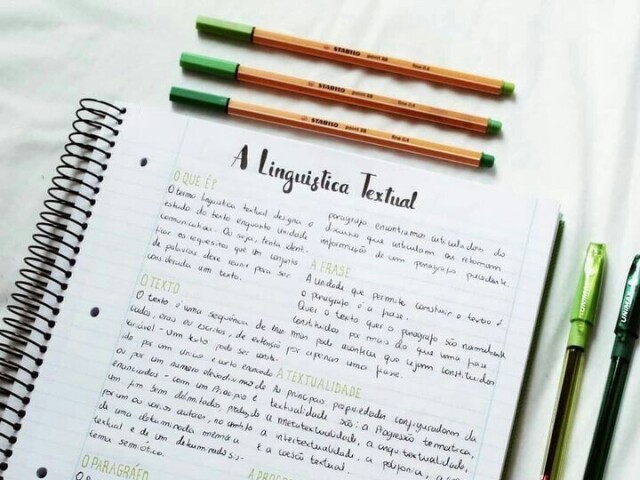 STABILO point 88 fine 0.4
STABILO point 88 fine 0.4
STABILO point 88 fine 0.4
A Linguística Textual
O QUE É?
O termo linguística textual designa o
estudo do texto enquanto unidade
comunicativa. Ou seja, tenta identi-
ficar os requesitos que um conjunto
de palavras deve reunir para ser
considerado um texto.
O TEXTO
O texto é uma sequência de
ou escritas, de extensão
variável - um texto pode ser
do por um único e curto enunciado
ou por um número elevadíssimo de
enunciados - com um princípio e
um fim bem delimitados, produzido
por um ou vários autores, no âmbito
de uma determinada memória
textual e de um determinado sis-
tema semiótico.
O PARÁGRAFO
parágrafo encontramos articuladores do
discurso que articulam ou retomam
informação de um parágrafo precedente.
A FRASE
A unidade que permite construir o texto e
o parágrafo é a frase.
Quer o texto quer o parágrafo são normalmente
constituídos por mais do que uma frase
mas pode acontecer que sejam constituídos
por apenas uma frase.
A TEXTUALIDADE
As principais propriedades configuradoras da
textualidade são: a progressão temática,
a metatextualidade, a arquitextualidade,
a intertextualidade, a polifonia, a
e a coesão textual.
UNIMAX
UNIMAX